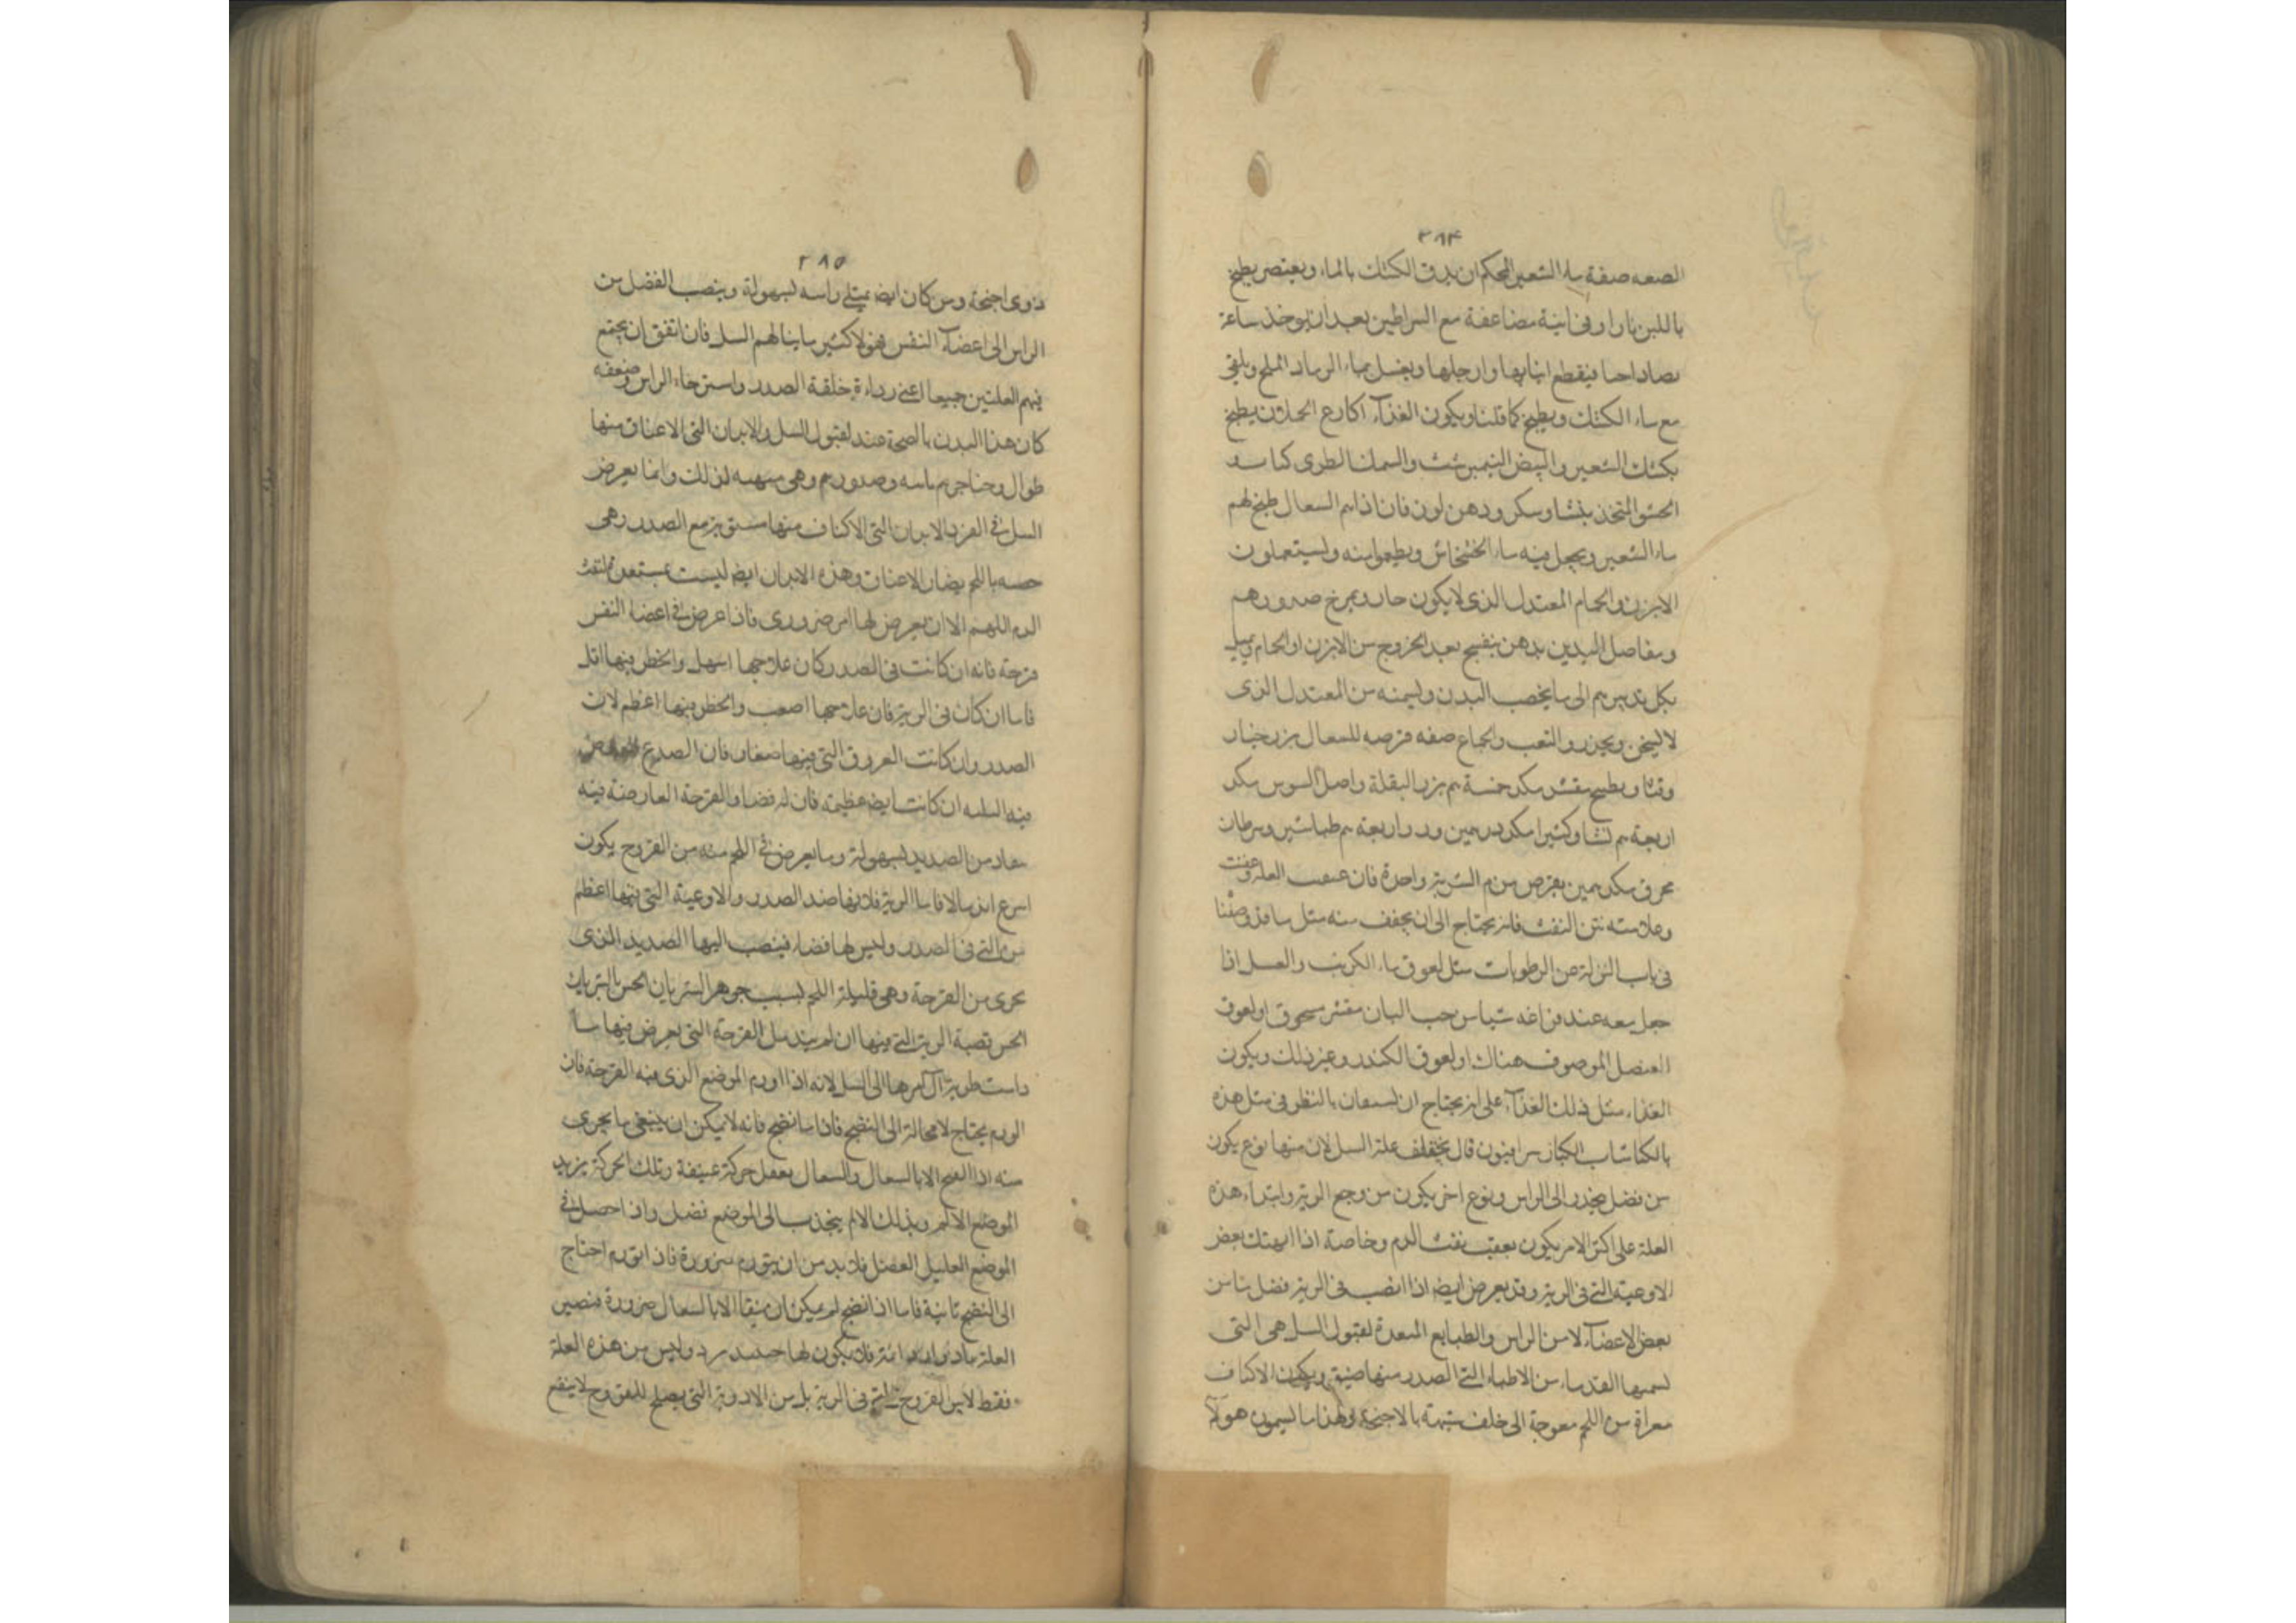 ٢٨٤
صفة ماء الشعير المحكم ان يدق الكشك بالماء ويعتصر يطبخ
باللبن نارا وفى انية مضاعفة مع السراطين بعد ان يوخذ ساعة
فيقطع انيابها وارجلها ويغسل بماء الرماد الملح ويلقى
مع ماء الكشك ويطبخ كما قلنا ويكون الغذآء اكارع الحملان يطبخ
بكشك الشعير والبيض النيمبرشت والسمك الطرى
الحسو المتخذ بنشا وسكر ودهن لوز فان اذاهم السعال طبخ لهم
ماء الشعير ويجعل فيه ماء الخشخاش ويطعموا منه ويستعملون
الابزن والحمام المعتدل الذى لا يكون حار ويمرخ صدورهم
ومفاصل اليدين بدهن بنفسج بعد الخروج من الابزن او الحمام ويميل
بكل تدبيرهم الى ما يخصب البدن ويسمنه من المعتدل الذى
لا يسخن ويحذروا التعب والجماع صفه قرصه للسعال بزر خيار
وقثا وبطيخ مقشر مكد خمسة بزر البقلة واصل السوس مكد
اربعة نشا وكثيرا مكد درهمين ورد اربعة طباشير وسرطان
محرق مكد يقرص من الشربة واحدة فان العلة وعفنت
وعلامته نتن النفث فانه يحتاج الى ان يجفف منه مثل ما قد وصفنا
فى باب النزلة من الرطوبات مثل لعوق ماء الكرنب والعسل اذا
جعل معه عند فراغه شيا من حب البان مقشر مسحوق او لعوق
العنصل الموصوف هناك او لعوق الكندر وغير ذلك ويكون
الغذاء مثل ذلك الغذآء على انه يحتاج ان يستعان بالنظر فى مثل هذه
سرافيون قال علة السل لان منها نوع يكون
من فضل ينحدر الى الراس ونوع اخر يكون من وجع الرية وابتداء هذه
العلة على اكثر الامر يكون بعقب نفث الدم وخاصة اذا انهتك بعض
الاوعية التى فى الرية وقد يعرض ايضا اذا انصب فى الرية فضل ما من
بعض الاعضآء لا من الراس والطبايع المستعدة لقبول السل هى التى
يسميها القدماء من الاطباء التى الصدر منها ضيق ويكون الاكتاف
معراة من اللحم معوجة الى خلف شبيهة بالاجنحة ولهذا ما يسمون هولآء
٢٨٥
ذوى اجنحة ومن كان ايضا يمتلى راسه بسهولة وينصب الفضل من
الراس الى اعضآء النفس فهولا كثير ما ينالهم السل فان اتفق ان يجتمع
فيهم العلتين جميعا اعنى رداءة خلقة الصدر واسترخاء الراس وضعفه
كان هذا البدن لقبول السل والابدان التى الاعناق منها
طوال وحناجرهم وصدورهم وهى لذلك وانما يعرض
السل فى الفرد الابدان التى الاكتاف منها مع الصدر وهى
باللحم الاعناق وهذه الابدان ايضا ليست بمستعدة لنفث
الدم اللهم الا ان يعرض لها امر ضرورى فاذا عرض فى اعضا النفس
قرحة فانه ان كانت فى الصدر كان علاجها اسهل والخطر فيها اقل
فاما ان كان فى الرية فان علاجها اصعب والخطر فيها اعظم لان
الصدر وان كانت العروق التى فيها صغار فان الصدع
فيه ان كانت ايضا عظيمة فان له فضا والقرحة العارضة فيه
من الصديد بسهولة وما يعرض فى اللحم منه من القروح يكون
اسرع اندمالا فاما الرية فلانها ضد الصدر والاوعية التى فيها اعظم
من التى فى الصدر وليس لها فضاء فينصب اليها الصديد الذى
يجرى من القرحة وهى قليلة اللحم بسبب جوهر الشريان الخشن الشريان
الخشن قصبة الرية التى فيها ان لم يندمل القرحة التى يعرض فيها ما
دامت طرية آل امرها الى السل لانه اذا ورم الموضع الذى فيه القرحة فان
الورم يحتاج لا محالة الى النضج فاذا ما نضج فانه لا يمكن ان ينقى ما يجرى
منه اذا انفتح الا بالسعال والسعال يفعل حركة عنيفة وتلك الحركة يزيد
الموضع الالم وبذلك الالم ينجذب الى الموضع فضل واذا حصل فى
الموضع العليل الفضل فلابد من ان يتورم ضرورة فاذا تورم احتاج
الى النضج ثانية فاما اذا نضج لم يمكن ان ينقا الا بالسعال ضرورة فتصير
العلة فلا يكون لها وليس من هذه العلة
فقط لا القروح التى فى الرية بل من الادوية التى يصلح للقروح لا ينفع